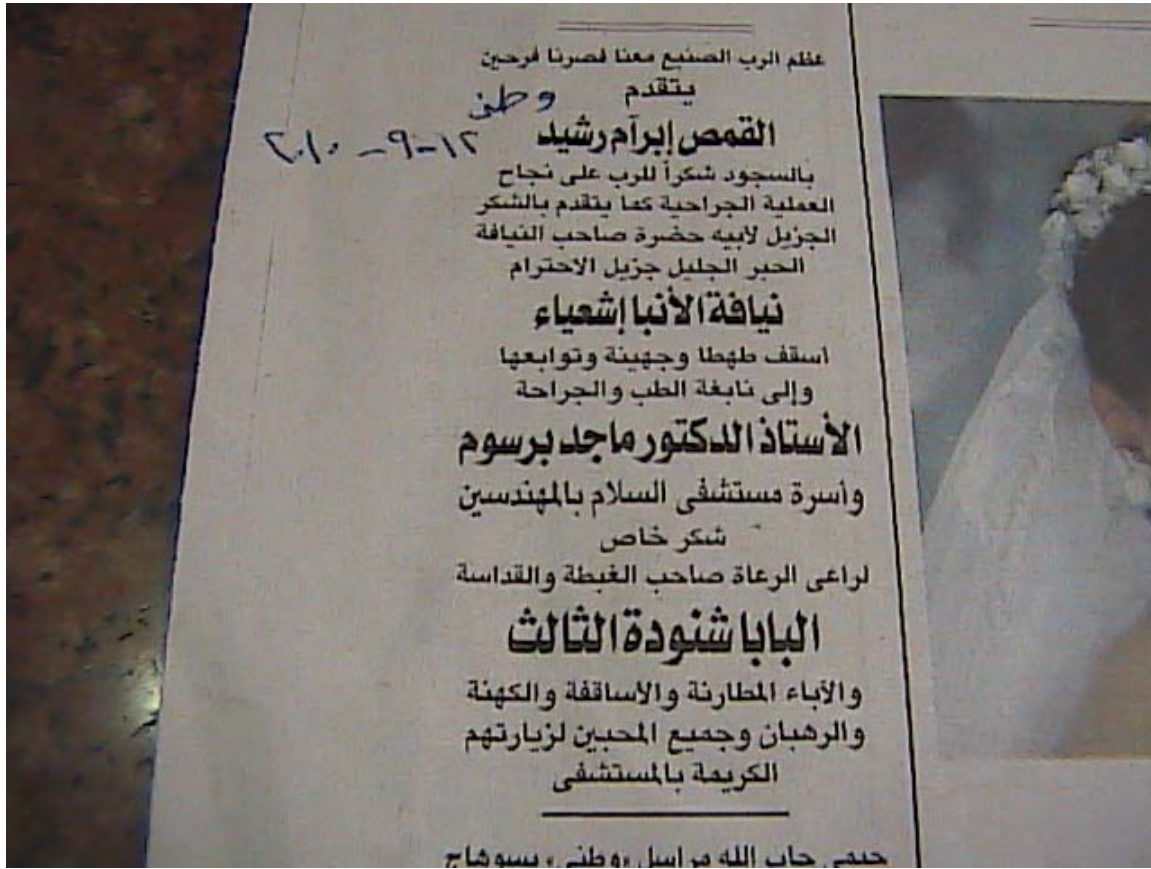 عظم الرب الصنيع معنا فصرنا فرحين
يتقدم
وطنى
القمص إبرآم رشيد
١٢-٩-٢٠١٠
بالسجود شكراً للرب على نجاح
العملية الجراحية كما يتقدم بالشكر
الجزيل لأبيه حضرة صاحب النيافة
الحبر الجليل جزيل الاحترام
نيافة الأنبا إشعياء
أسقف طهطا وجهينة وتوابعها
وإلى نابغة الطب والجراحة
الأستاذ الدكتور ماجد برسوم
وأسرة مستشفى السلام بالمهندسين
شكر خاص
لراعى الرعاة صاحب الغبطة والقداسة
البابا شنودة الثالث
والآباء المطارنة والأساقفة والكهنة
والرهبان وجميع المحبين لزيارتهم
الكريمة بالمستشفى
جاب الله مراسل «وطنى» بسوهاج